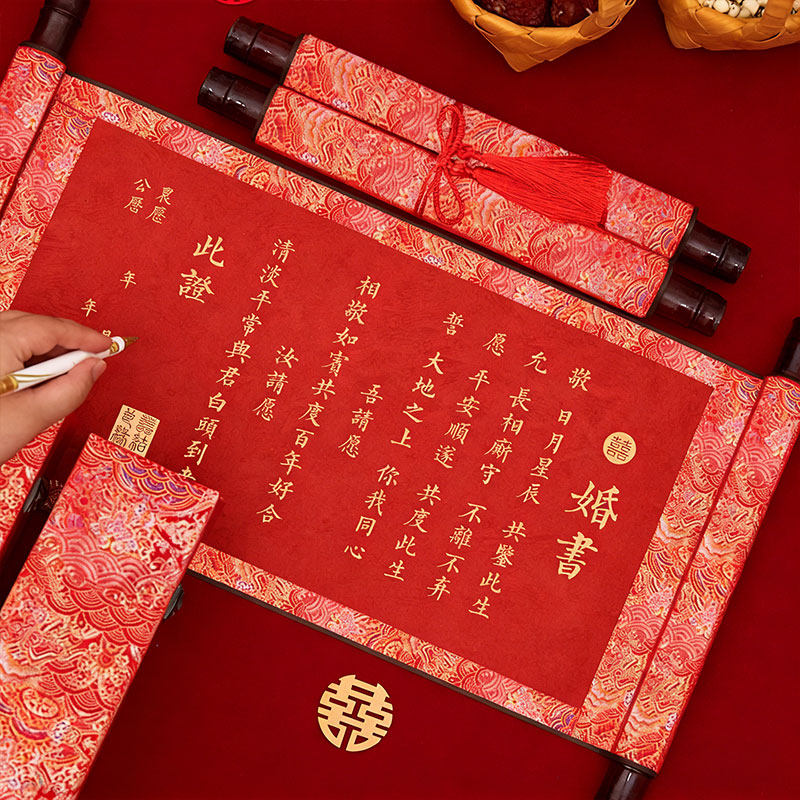 囍
婚書
敬 日月星辰 共鑒此生
允 長相廝守 不離不弃
愿 平安順遂 共度此生
誓 大地之上 你我同心
吾請愿
相敬如賓共度百年好合
汝請愿
清淡平常與君白頭到
此證
年
公
年
囍